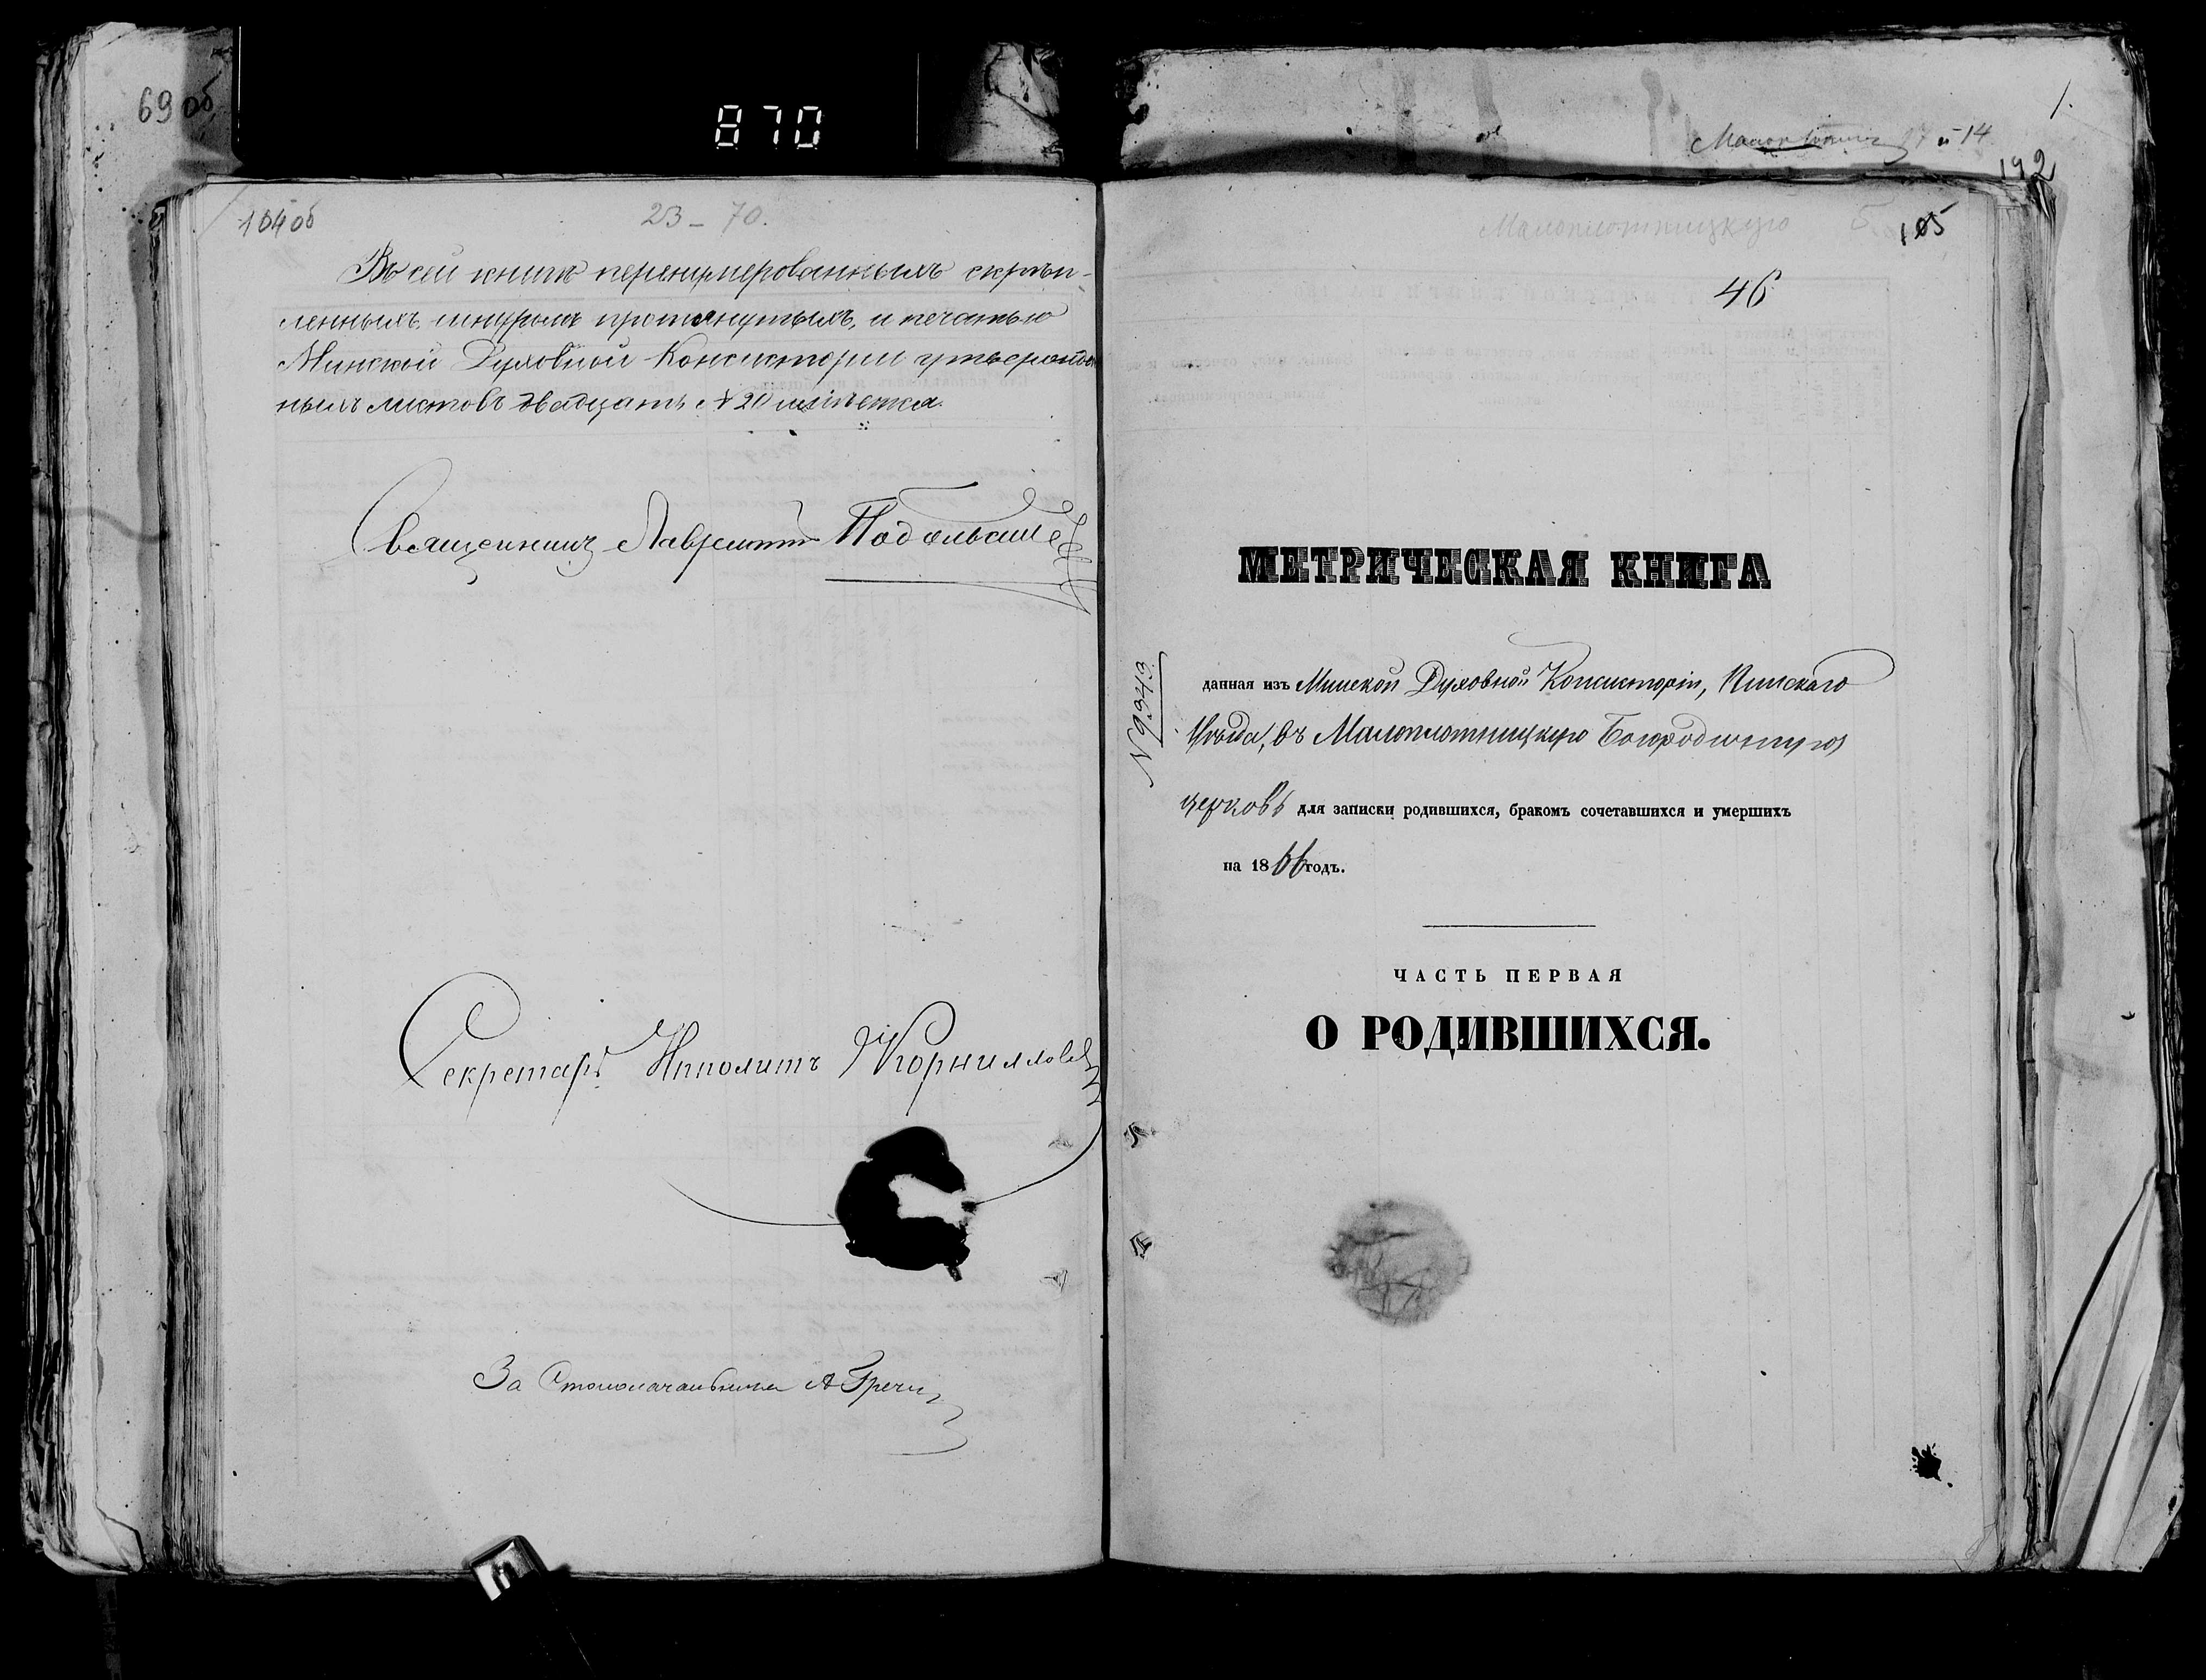 69 об
870
104 об
23 – 70.
Въ сей книгѣ перенумерованныхъ скрѣп-
ленныхъ шнуромъ протянутыхъ, и печатью
Минской Духовной Консисторіи утвержден
ныхъ листовъ двадцать № 20
Священникъ Лаврентій
Секретарь Ипполитъ Корниловъ
За Столоначальника А Гречи
1.
и 14
192
Малоплотницкую Б
105
46
МЕТРИЧЕСКАЯ КНИГА
№ 9343
данная изъ Минской Духовной Консисторіи, Пинскаго
Уѣзда, въ Малоплотницкую Богородичную
церковь для записки родившихся, бракомъ сочетавшихся и умершихъ
на 1866 годъ.
ЧАСТЬ ПЕРВАЯ
О РОДИВШИХСЯ.